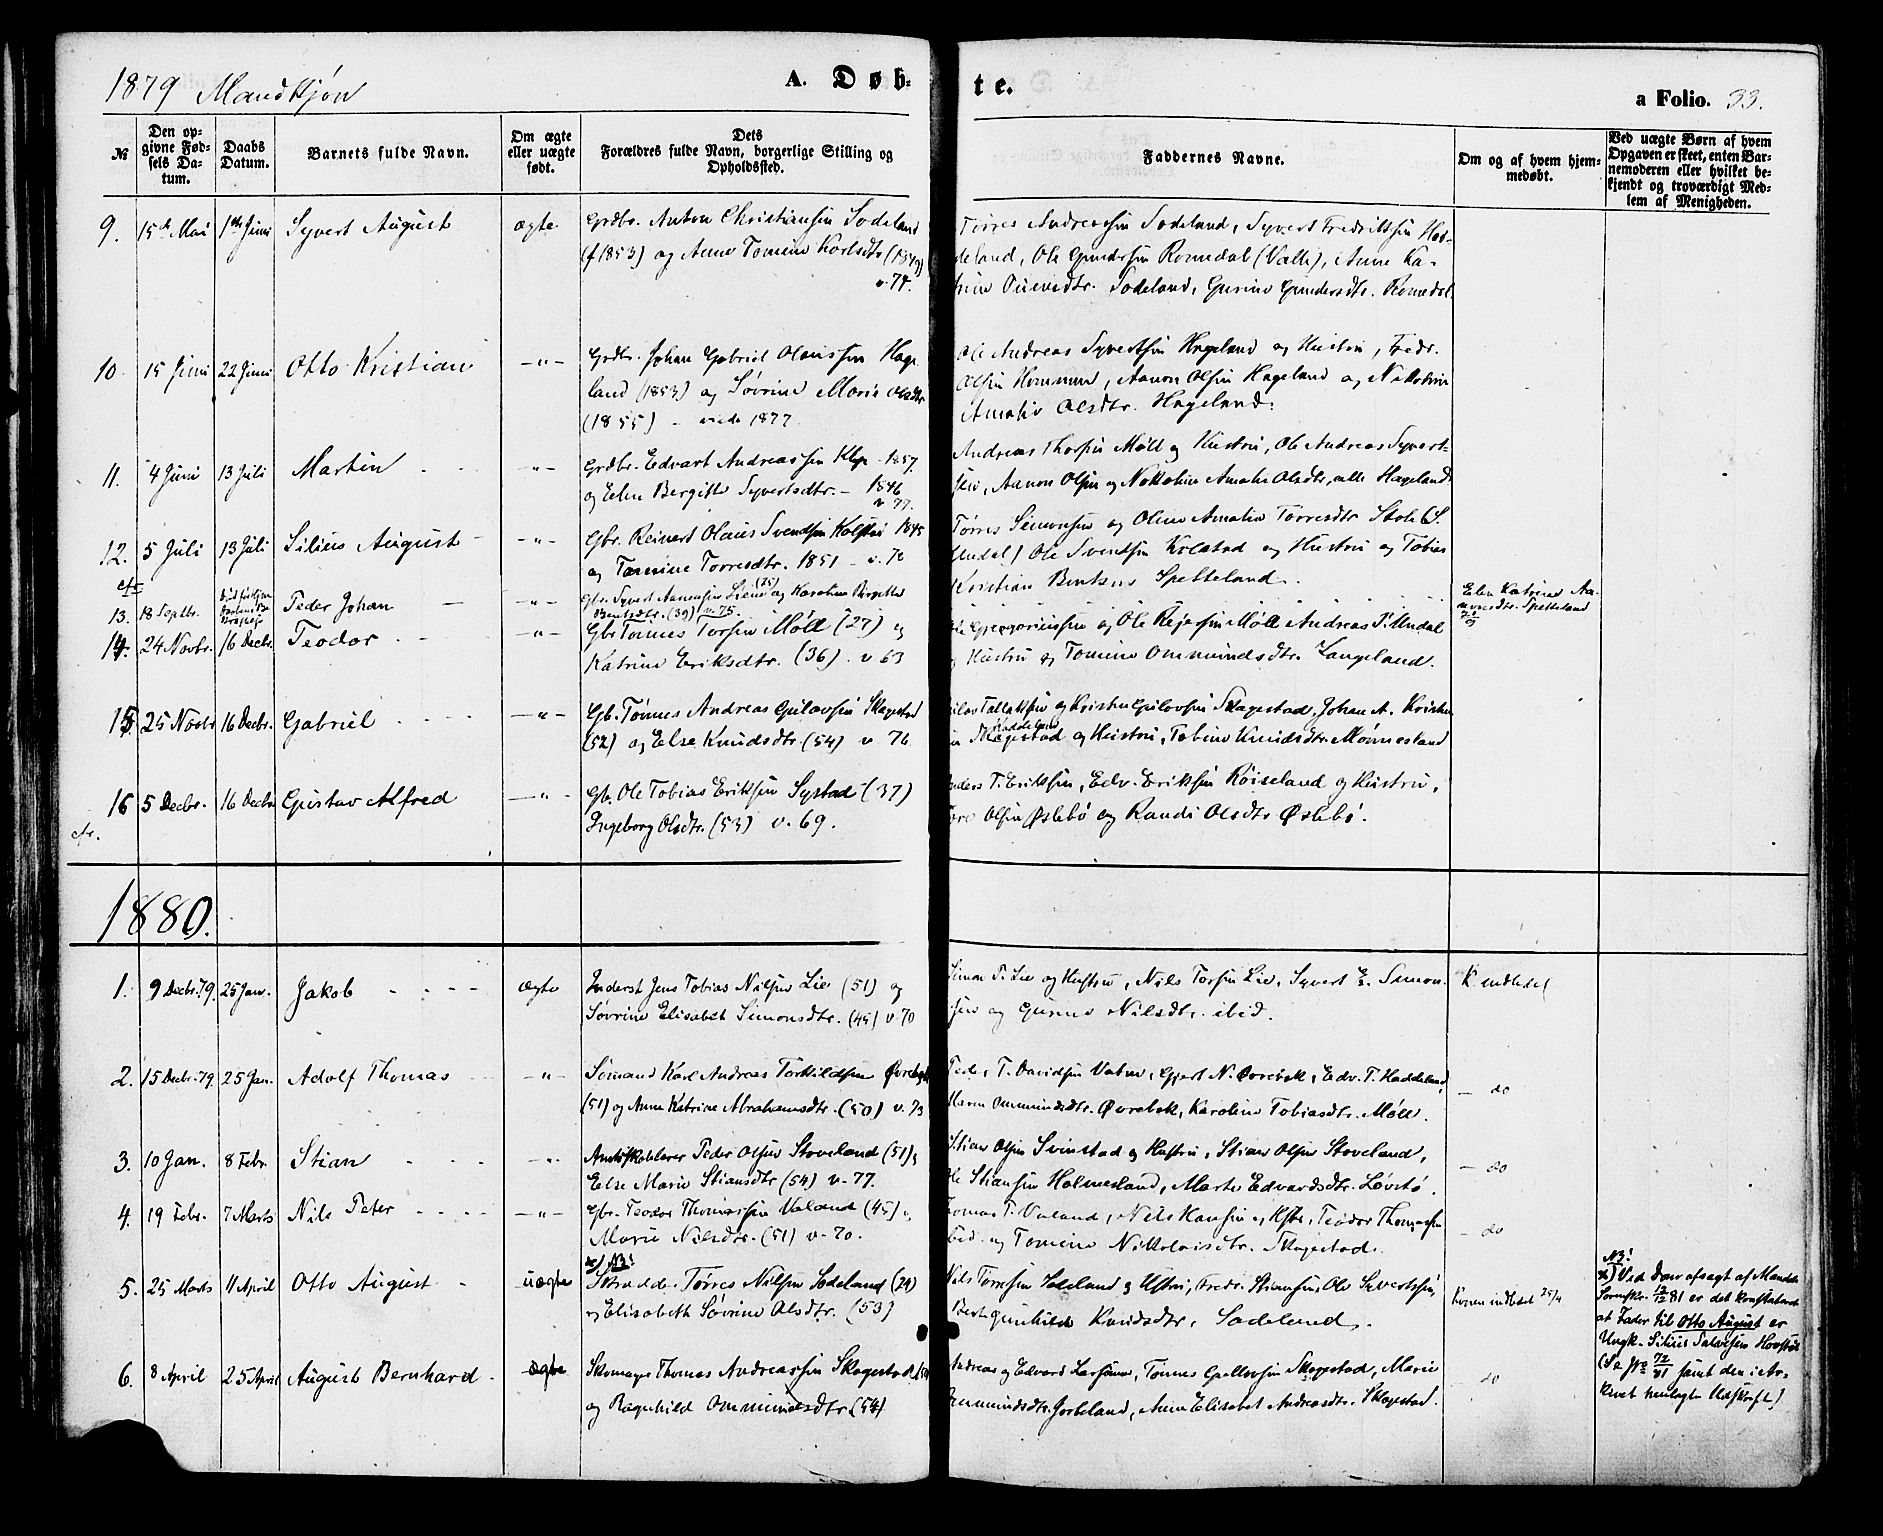 1879 Mandkjøn
A. Døb-
te.
a Folio. 33.
№
Den op-
givne Fød-
sels Da-
tum.
Daabs
Datum.
Barnets fulde Navn.
Om ægte
eller uægte
født.
Dets
Forældres fulde Navn, borgerlige Stilling og
Opholdssted.
Faddernes Navne.
Om og af hvem hjem-
medøbt.
Ved uægte Børn af hvem
Opgaven er skeet, enten Bar-
nemoderen eller hvilket be-
kjendt og troværdigt Med-
lem af Menigheden.
9. 15de Mai 1ste Juni Syvert August ægte Grdbr. Anton Christiansen Sodeland
(f 1853) og Anne Tomine Karlsdtr (1849)
v. 74.
Tørres Andreassen Sodeland, Syvert Fredriksen Had-
deland, Ole Gundersen Romedal (Valle), Anne Ka-
trine Sodeland, Gurine Gundersdtr. Romedal
10. 15 Juni 22 Juni Otto Kristian -"- Grdbr. Johan Gabriel Olaussen Hage-
land (1853) og Søvrine Marie Olsdtr
(1855) - viede 1877
Ole Andreas Syvertsen Hageland og Hustru, Fredr.
Olsen Hommen, Aanon Olsen Hageland og Nikoline
Amalie Olsdtr. Hageland.
11. 4 Juni 13 Juli Martin -"- Grdbr. Edvart Andreassen Klep - 1857.
og Elen Bergitte Syvertsdtr. - 1846
v 77.
Andreas Thorsen Møll og Hustru, Ole Andreas Syvert-
sen, Aanon Olsen og Nikoline Amalie Olsdtr, alle Hageland.
12. 5 Juli 13 Juli Silius August -"- Gbr. Reinert Olaus Svendsen Kolstad 1845
og Tomine Torresdtr. 1851 - v. 72
Tørres Simonsen og Oline Amalie Torresdtr Stole (S.
Undal) Ole Svendsen Kolstad og Hustru og Tobias
Kristian Bentsen Spetteland.
cfr
13. 18 Septbr. Peder Johan -"- Gbr. Syvert Aanensen Liene (25) og Karoline Birgitte
Bentsdtr. (39) v. 75.
Elen Katrine Aa-
nensdtr. Spetteland
14. 24 Novbr. 16 Decbr. Teodor -"- Gbr Tønnes Torsen Møll (27) og
Katrine Eriksdtr. (36). v 63
Ole Gregoriussen og Ole Rejersen Møll Andreas P. Undal
og Hustru og Tomine Ommundsdtr. Langeland.
15. 25 Novbr 16 Decbr. Gabriel -"- Gb. Tønnes Andreas Guslovsen Skagestad
(52) og Else Knudsdtr. (54) v 76
Tallaksen og Kristen Guslovsen Skagestad, Johan A. Kristen-
Haddeland
sen Skagestad og Hustru, Tobine Knudsdtr. Mønnesland
16 5 Decbr. 16 Decbr Gustav Alfred -"- Gb. Ole Tobias Eriksen Systad (37)
Ingeborg Olsdtr. (53) v. 69.
Anders T. Eriksen, Edv. Eriksen Røiseland og Hustru,
Tore Olsen Øslebø og Randi Olsdtr Øslebø.
cfr.
1880.
1. 9 Decbr. 79. 25 Jan. Jakob ægte Inderst Jens Tobias Nilsen Lie (51) og
Søvrine Elisabet Simonsdtr. (45) v. 70
Simon P. Lie og Hustru, Nils Torsen Lie, Syvert E. Simon-
sen og Gunne Nilsdtr. ibid.
K. indledet
2. 15 Decbr. 79. 25 Jan. Adolf Thomas -"- Sømand Karl Andreas Torkildsen Øvrebøk
(51) og Anne Katrine Abrahamsdtr. (50) v. 73
Peder T. Davidsen Vatne, Gjert N. Øvrebøk, Edv. T. Haddeland,
Maren Ommundsdtr. Øvrebøk, Karoline Tobiasdtr. Møll.
- do
3. 10 Jan. 8 Febr. Stian -"- Amtskolelærer Peder Olsen Stoveland (51) og
Else Marie Stiansdtr (54) v. 77.
Stian Olsen Svinstad og Hustru, Stian Olsen Stoveland,
Ole Stiansen Holmesland, Marte Edvardsdtr. Løvstø.
- do
4. 19 Febr. 7 Marts Nils Peter -"- Gbr. Teodor Thomassen Valand (45) og
Marie Nilsdtr. (51) v. 70.
Tomas T. Valand, Nils Hansen og Hstr, Teodor Thomassen
ibid. og Tomine Nikolaisdtr. Skagestad.
- do
x) NB!
5. 25 Marts 11 April Otto August uægte Skrædd. Tørres Nilsen Sodeland (29)
og Elisabeth Søvrine Olsdtr. (53)
Nils Tørresen Sodeland og Hstru, Fredr. Stiansen, Ole Syvertssen,
Bert gunhilde Knudsdtr, Sodeland.
Konen indledet 25/4
NB!
x) Ved Dom afsagt af Mandals
Sorenskr. 12/12 81 er det konstateret
at Fader til Otto August er
Ungk. Silius Salvesen Hovstøl
(Se Jro 72/81 samt den i Ar-
kivet henlagte Udskrift)
6. 8 April 25 April August Bernhard ægte Skomager Thomas Andreassen Skagestad (54)
og Ragnhild Ommundsdtr (54)
Andreas og Edvard Larssønner, Tønnes Gullovsen Skagestad, Marie
Ommundsdtr. Jortveland, Anne Elisabet Andreasdtr. Skagestad.
do